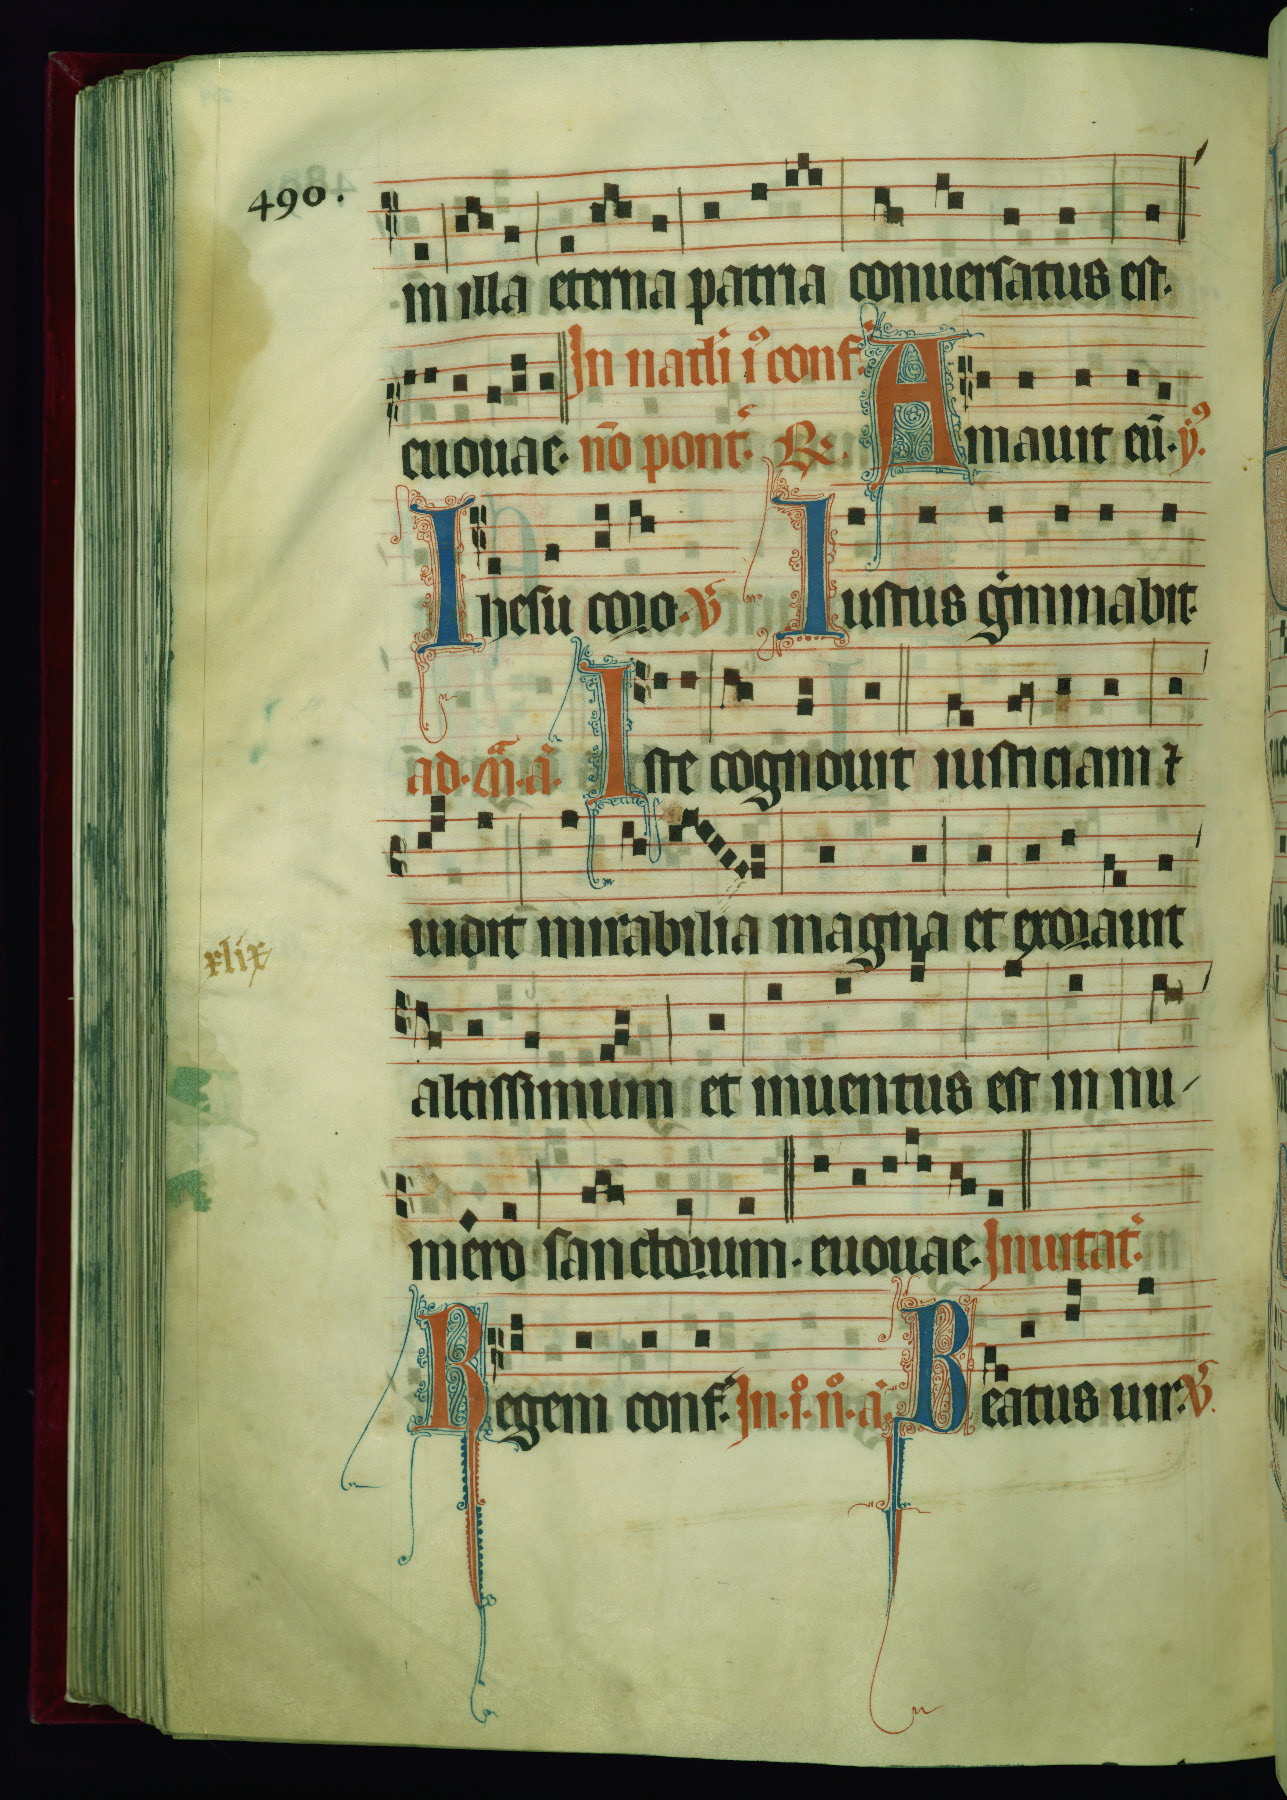 490.
in illa eterna patria conuersatus est.
In natli i⁹ conf.
euouae. nō pont. ℟. Amauit eū. ps.
Ihesu coro. ℣ Iustus gi̇minabit.
ad. m̄. a. Iste cognouit iusticiam ⁊
uidit mirabilia magna et exorauit
xlix
altissimum et inuentus est in nu-
mero sanctorum. euouae. Inuitat.
Regem conf. In. i̊. n̊. a. Beatus uir. ℣.